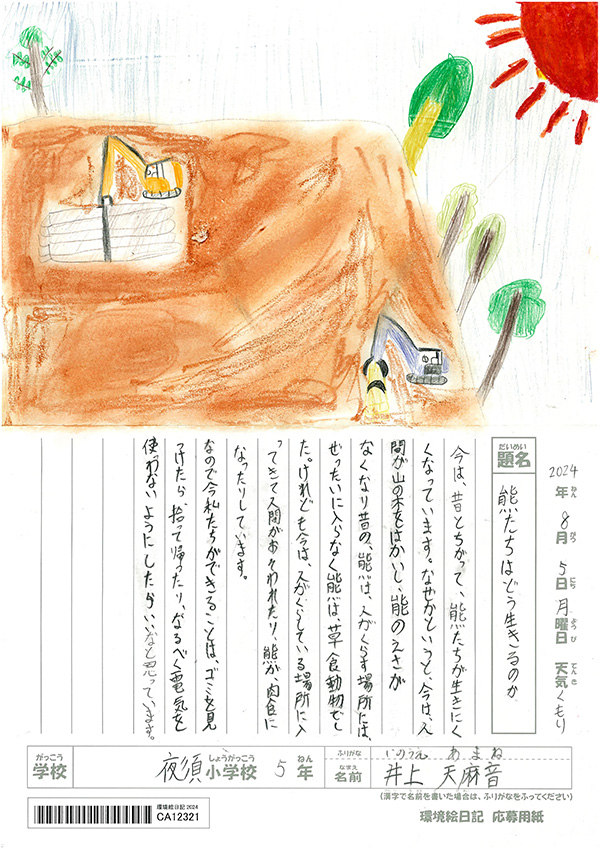 2024年8月5日月曜日 天気くもり
ねん がつ にち ようび てんき
だいめい
題名
熊たちはどう生きるのか
今は、昔とちがって、熊たちが生きにく
くなっています。なぜかというと、今は、人
間が山の木をはかいし、熊のえさが
なくなり昔の、熊は、人がくらす場所には、
ぜったいに入らなく熊は、草食動物でし
た。けれども今は、人がくらしている場所に入
ってきて人間がおそわれたり、熊が、肉食に
なったりしています。
なので今私たちができることは、ゴミを見
つけたら拾って帰ったり、なるべく電気を
使わないようにしたらいいなと思っています。
がっこう しょうがっこう ねん
学校 夜須小学校 5年
ふりがな いのうえ あまね
なまえ
名前 井上 天麻音
(漢字で名前を書いた場合は、ふりがなをふってください)
環境絵日記 2024
CA12321
環境絵日記 応募用紙